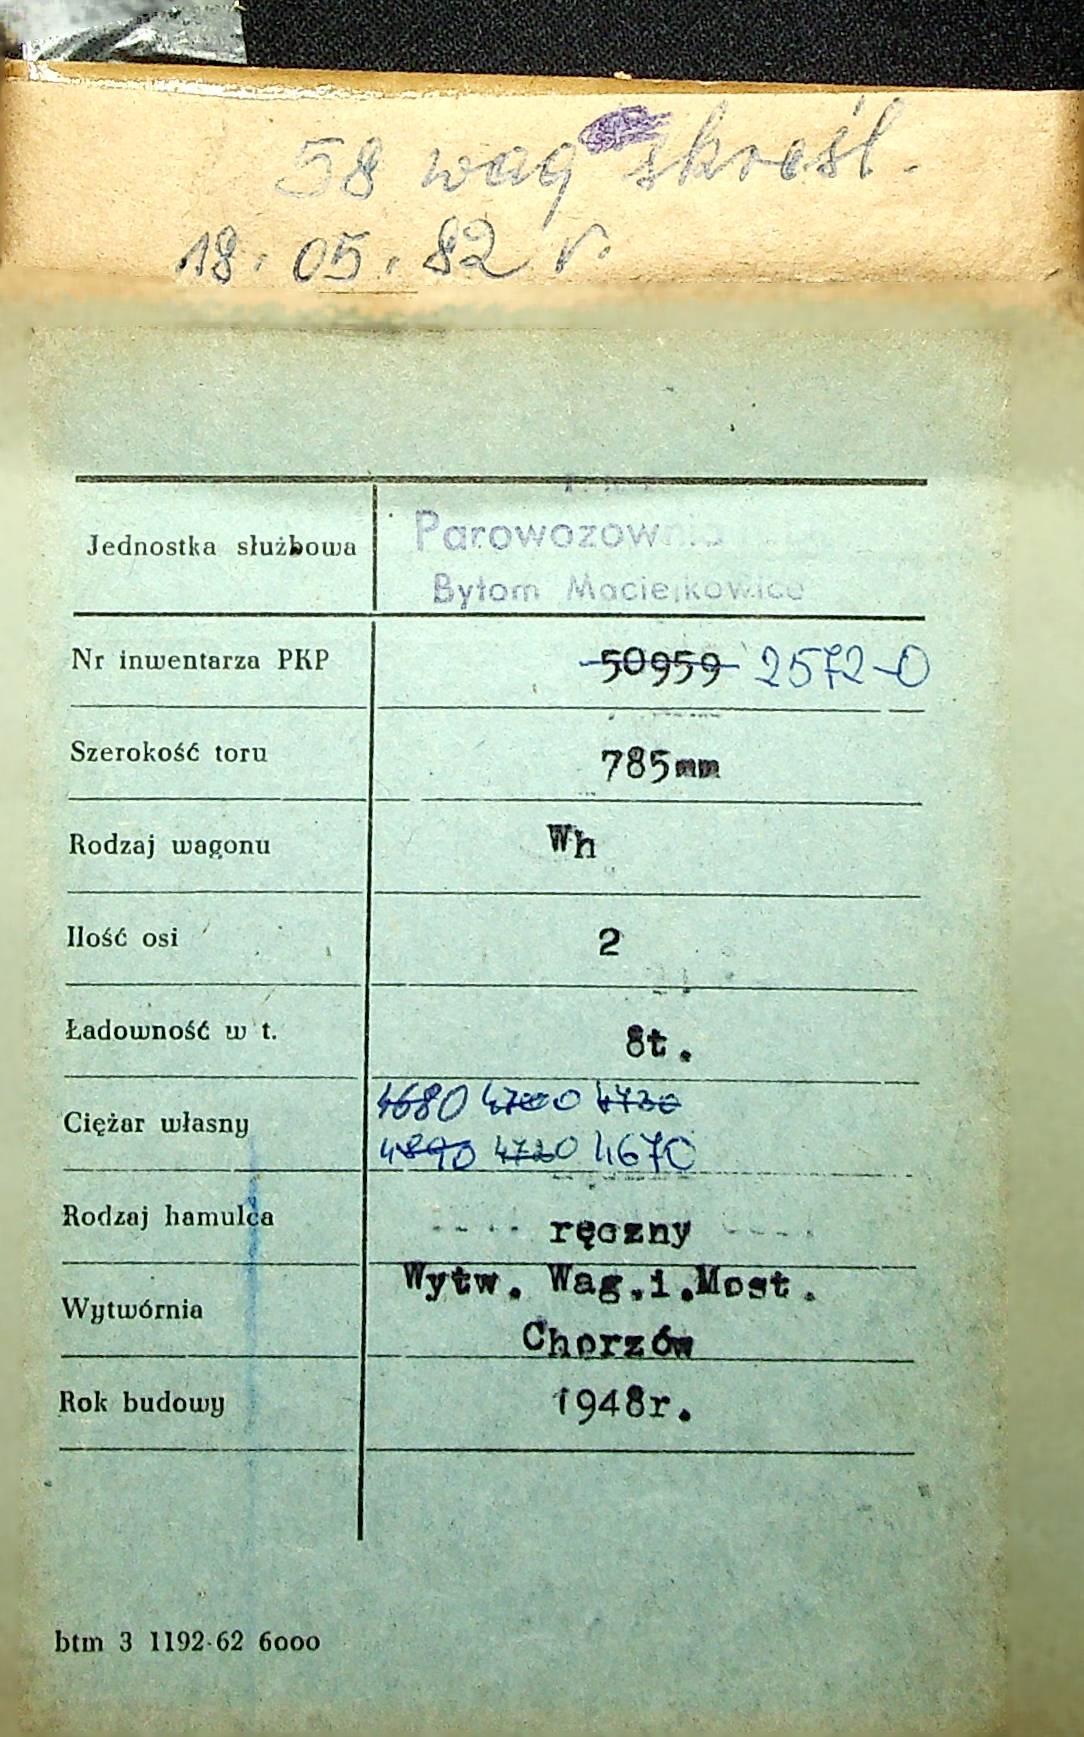 58 wag skreśl.
18.05.82 r.
Jednostka służbowa Parowozownia
Bytom Maciejkowice
Nr inwentarza PKP 50959 2572-0
Szerokość toru 785mm
Rodzaj wagonu Wh
Ilość osi 2
Ładowność w t. 8t.
4680 4700 4730
Ciężar własny
4890 4720 4670
Rodzaj hamulca ręczny
Wytw. Wag.i.Most.
Wytwórnia
Chorzów
Rok budowy 1948r.
btm 3 1192-62 6000